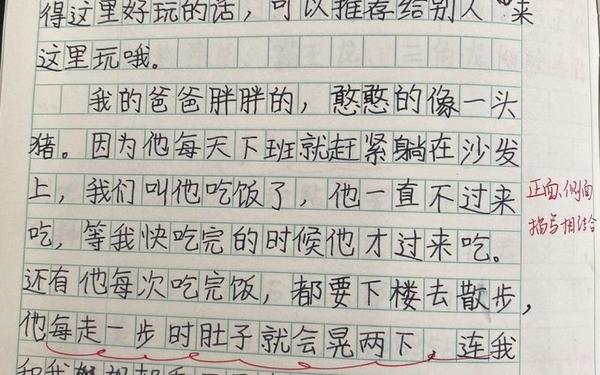 得这里好玩的话，可以推荐给别人来
这里玩哦。
我的爸爸胖胖的，憨憨的像一头
猪。因为他每天下班就赶紧躺在沙发
上，我们叫他吃饭了，他一直不过来
吃，等我快吃完的时候他才过来吃。
还有他每次吃完饭，都要下楼去散步，
他每走一步时肚子就会晃两下，连我
正面、侧面
描写相结合